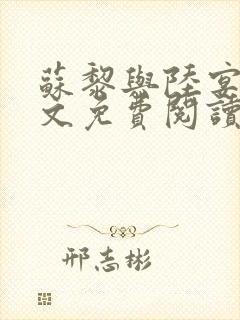 蘇黎與陸宴
文免費閱讀
邢志彬